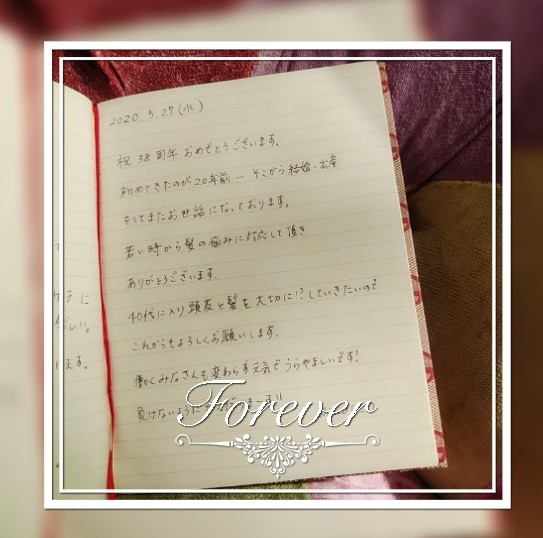 2020.5.27(水)
祝 38周年 おめでとうございます。
初めてきたのが20年前… そこから結婚・出産
をしてまたお世話になっております。
若い時から髪の悩みに対応して頂き
ありがとうございます。
40代に入り頭皮と髪を大切に!?していきたいので
これからもよろしくお願いします。
働くみなさんも変わらず元気でうらやましいです!
負けないように
ます。
Forever